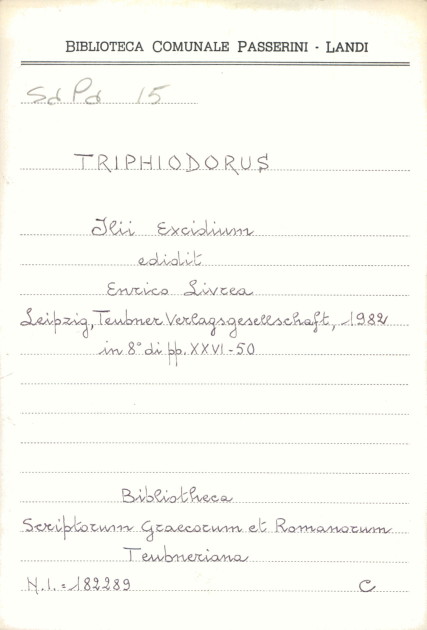 BIBLIOTECA COMUNALE PASSERINI - LANDI
Sd Pd 15
TRIPHIODORUS
Ilii Excidium
edidit
Enrico Livrea
Leipzig, Teubner Verlagsgesellschaft, 1982
in 8° di pp. XXVI-50
Bibliotheca
Scriptorum Graecorum et Romanorum
Teubneriana
N.I. = 182289 C